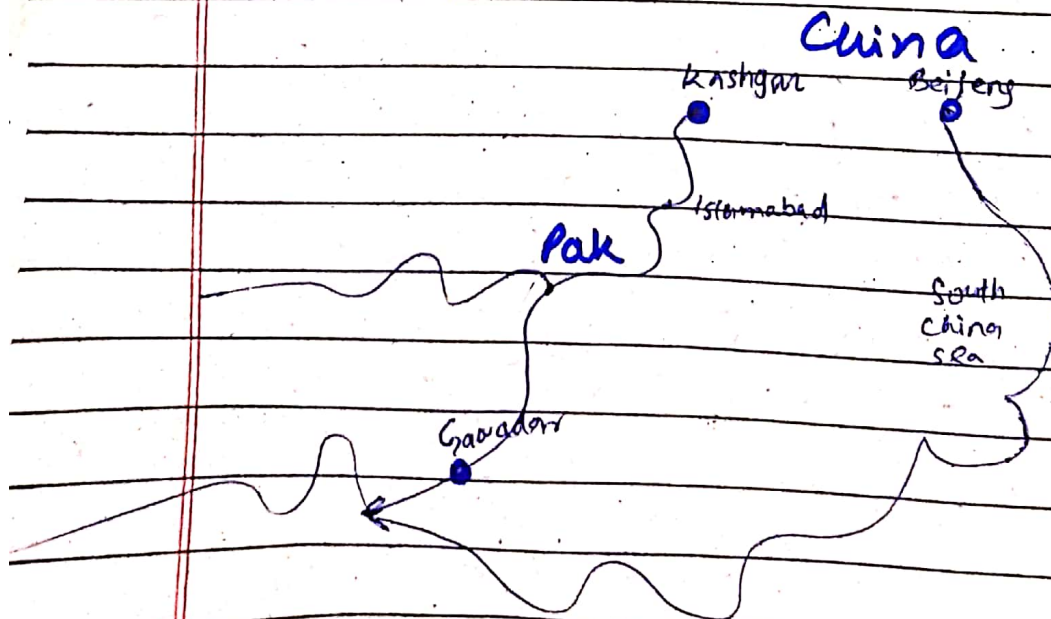 China
Kashgar
Beijeng
Islamabad
Pak
South
China
Sea
Gawadar